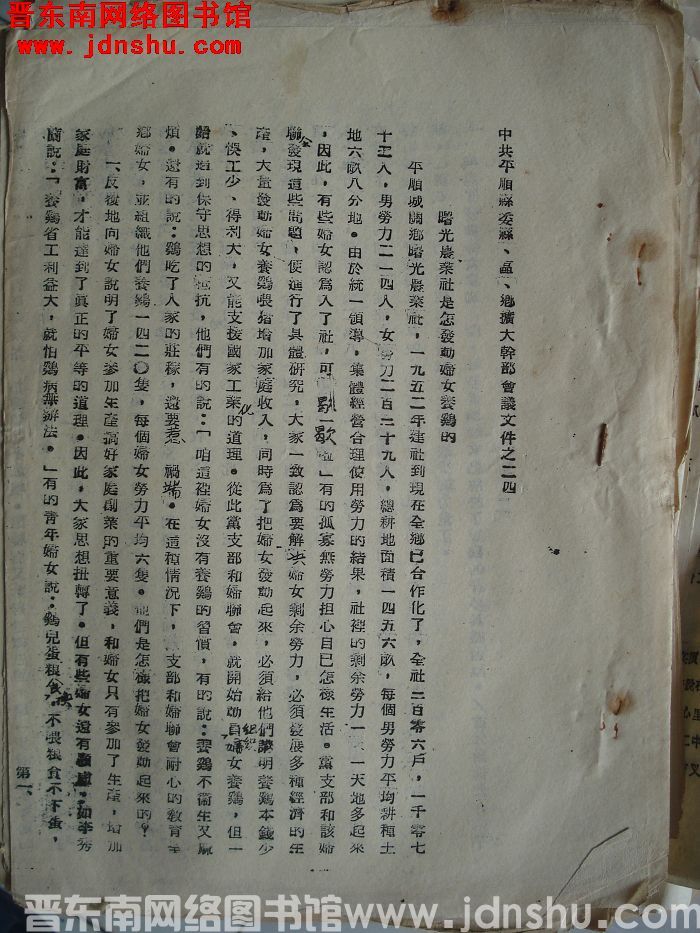 晋东南网络图书馆
www.jdnshu.com
中共平順縣委縣、區、鄉擴大幹部會議文件之二四
曙光農業社是怎發動婦女養鷄的
平順城關鄉曙光農業社，一九五二年建社到現在全鄉已合作化了，全社二百零六戶，一千零七
十三人，男勞力二一四人，女勞力二百二十九人，總耕地面積一四五六畝，每個男勞力平均耕種土
地六畝八分地。由於統一領導，集體經營合理使用勞力的結果，社裡的剩余勞力一天一天地多起來
，因此，有些婦女認為入了社，可歇一歇啦」有的孤寡無勞力担心自已怎樣生活。黨支部和該婦
聯會發現這些問題，便進行了具體研究，大家一致認為要解決婦女剩余勞力，必須發展多種經濟的生
產，大量發動婦女養鷄喂猪增加家庭收入，同時為了把婦女發動起來，必須給他們講明養鷄本錢少
、悞工少、得利大，又能支援國家工業化的道理。從此黨支部和婦聯會，就開始動員組織婦女養鷄，但一
開始就遇到保守思想的抵抗，他們有的說：「咱這裡婦女沒有養鷄的習慣，有的說：養鷄不衛生又麻
煩。還有的說：鷄吃了人家的莊稼，還要惹禍端。在這種情況下，支部和婦聯會耐心的教育全
鄉婦女，並組織他們養鷄一四二〇隻，每個婦女勞力平均六隻。他們是怎樣把婦女發動起來的？
一、反復地向婦女說明了婦女參加生產搞好家庭副業的重要意義，和婦女只有參加了生產，增加
家庭財富，才能達到了真正的平等的道理。因此，大家思想扭轉了。但有些婦女還有顧慮。如李秀
蘭說：「養鷄省工利益大，就怕鷄病無辦法。」有的青年婦女說：鷄兒蛋粮食換，不喂粮食不下蛋，
第一、
晋东南网络图书馆 www.jdnshu.com